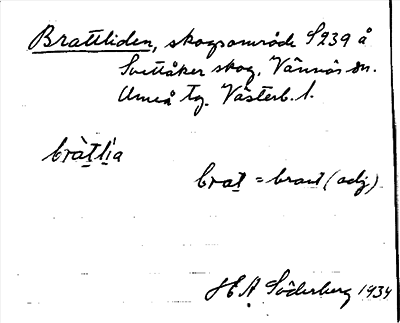 Brattliden, skogsområde S239 å
Svettåker skog. Vännäs sn.
Umeå tg. Västerb. l.
bràt̲l̲ia
brat̲ = brant (adj)
H E A Söderberg 1934